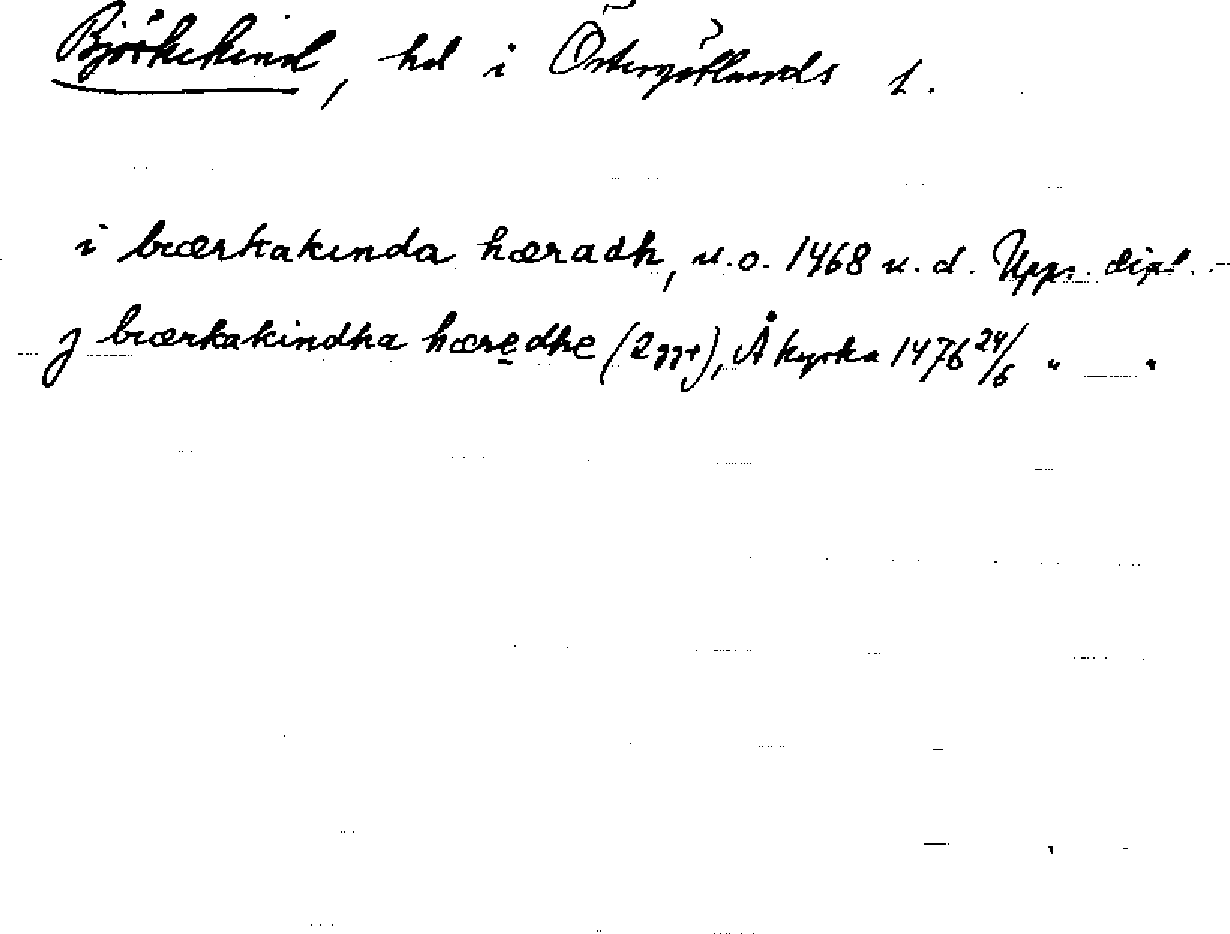 Björkekind, hd i Östergötlands l.
i biærkakinda hæradh, u.o. 1468 u.d. Upps. dipl.
j biærkakindha hæredhe (2 ggr), Å kyrka 1476 24/6 " — "